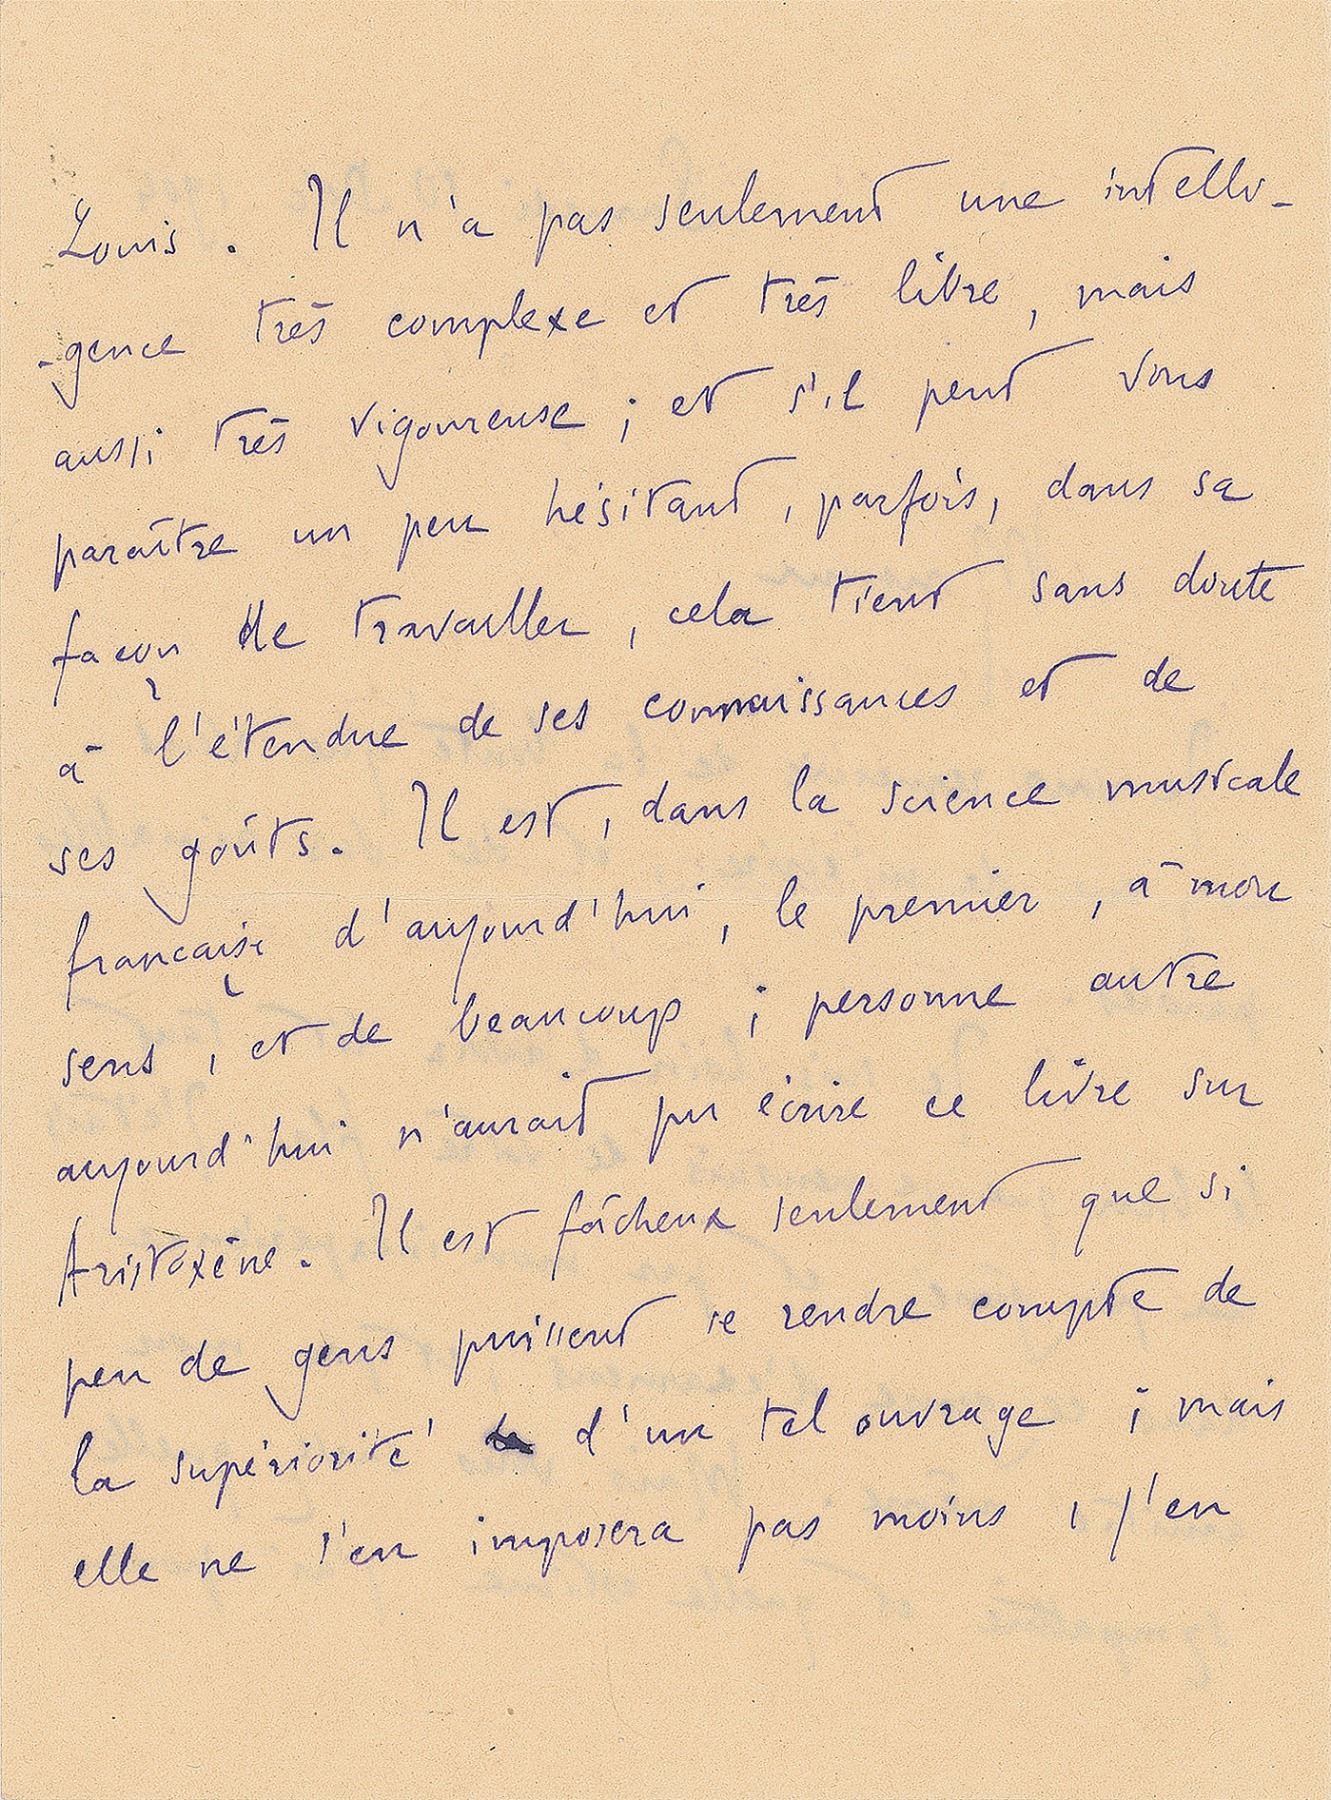 Louis. Il n'a pas seulement une intelli-
-gence très complexe et très libre, mais
aussi très vigoureuse ; et s'il peut vous
paraître un peu hésitant, parfois, dans sa
façon de travailler, cela tient sans doute
à l'étendue de ses connaissances et de
ses goûts. Il est, dans la science musicale
française d'aujourd'hui, le premier, à mon
sens, et de beaucoup ; personne autre
aujourd'hui n'aurait pu écrire ce livre sur
Aristoxène. Il est fâcheux seulement que si
peu de gens puissent se rendre compte de
la supériorité d'un tel ouvrage ; mais
elle ne s'en imposera pas moins, j'en